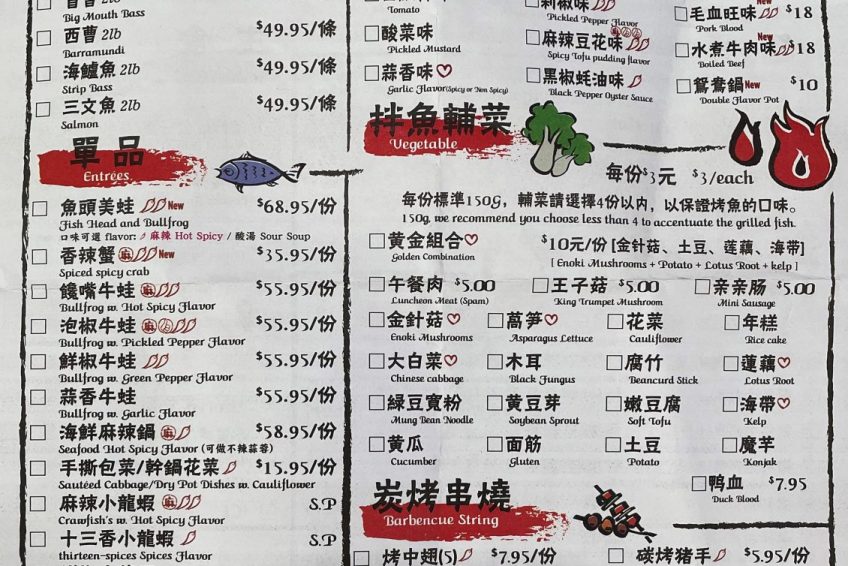 Big Mouth Bass
西曹 2lb $49.95/條
Barramundi
海鱸魚 2lb $49.95/條
Strip Bass
三文魚 2lb $49.95/條
Salmon
單品
Entrées
魚頭美蛙 New $68.95/份
Fish Head and Bullfrog
口味可選 flavor: 麻辣 Hot Spicy / 酸湯 Sour Soup
香辣蟹 麻 New $35.95/份
Spiced spicy crab
饞嘴牛蛙 麻 $55.95/份
Bullfrog w. Hot Spicy Flavor
泡椒牛蛙 麻 $55.95/份
Bullfrog w. Pickled Pepper Flavor
鮮椒牛蛙 $55.95/份
Bullfrog w. Green Pepper Flavor
蒜香牛蛙 $55.95/份
Bullfrog w. Garlic Flavor
海鮮麻辣鍋 麻 $58.95/份
Seafood Hot Spicy Flavor (可做不辣蒜蓉)
手撕包菜/幹鍋花菜 $15.95/份
Sautéed Cabbage/Dry Pot Dishes w. Cauliflower
麻辣小龍蝦 麻 S.P
Crawfish's w. Hot Spicy Flavor
十三香小龍蝦 S.P
thirteen-spices Spices Flavor
Tomato
酸菜味
Pickled Mustard
蒜香味
Garlic Flavor(Spicy or Non Spicy)
剁椒味
Pickled Pepper Flavor
麻辣豆花味
Spicy Tofu pudding flavor
黑椒蚝油味
Black Pepper Oyster Sauce
毛血旺味 New $18
Pork Blood
水煮牛肉味 New $18
Boiled Beef
鴛鴦鍋 New $10
Double Flavor Pot
拌魚輔菜
Vegetable
每份$3元 $3/each
每份標準150G，輔菜請選擇4份以内，以保證烤魚的口味。
150g, we recommend you choose less than 4 to accentuate the grilled fish.
黄金組合 $10元/份 [金針菇、土豆、莲藕、海帶]
Golden Combination [ Enoki Mushrooms + Potato + Lotus Root + kelp ]
午餐肉 $5.00 王子菇 $5.00 亲亲肠 $5.00
Luncheon Meat (Spam) King Trumpet Mushroom Mini Sausage
金針菇 萵笋 花菜 年糕
Enoki Mushrooms Asparagus Lettuce Cauliflower Rice cake
大白菜 木耳 腐竹 蓮藕
Chinese cabbage Black Fungus Beancurd Stick Lotus Root
綠豆寬粉 黄豆芽 嫩豆腐 海帶
Mung Bean Noodle Soybean Sprout Soft Tofu Kelp
黄瓜 面筋 土豆 魔芋
Cucumber Gluten Potato Konjak
鸭血 $7.95
Duck Blood
炭烤串燒
Barbencue String
烤中翅(5) $7.95/份 碳烤猪手 $5.95/份